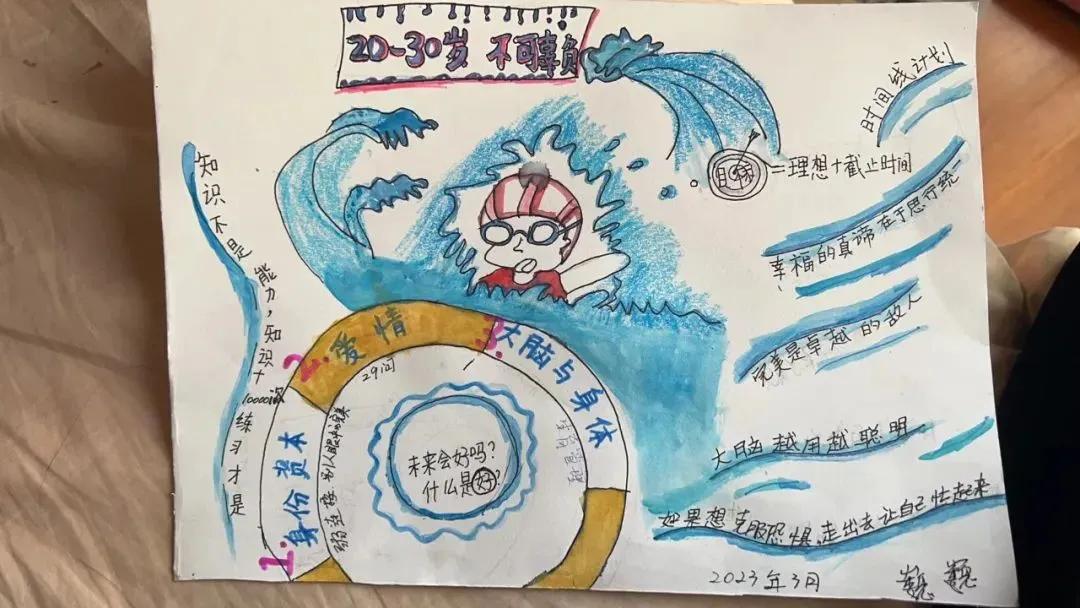 20-30岁 不可辜负
时间线计划
目标
=理想+截止时间
幸福的真谛在于思行统一
完美是卓越的敌人
大脑越用越聪明
如果想克服恐惧,走出去让自己忙起来
知识不是能力,知识+10000次练习才是
1.身份资本
弱连接
别人眼中的完美
2.爱情
29问
3.大脑与身体
未来会好吗?
什么是好?
2023年3月